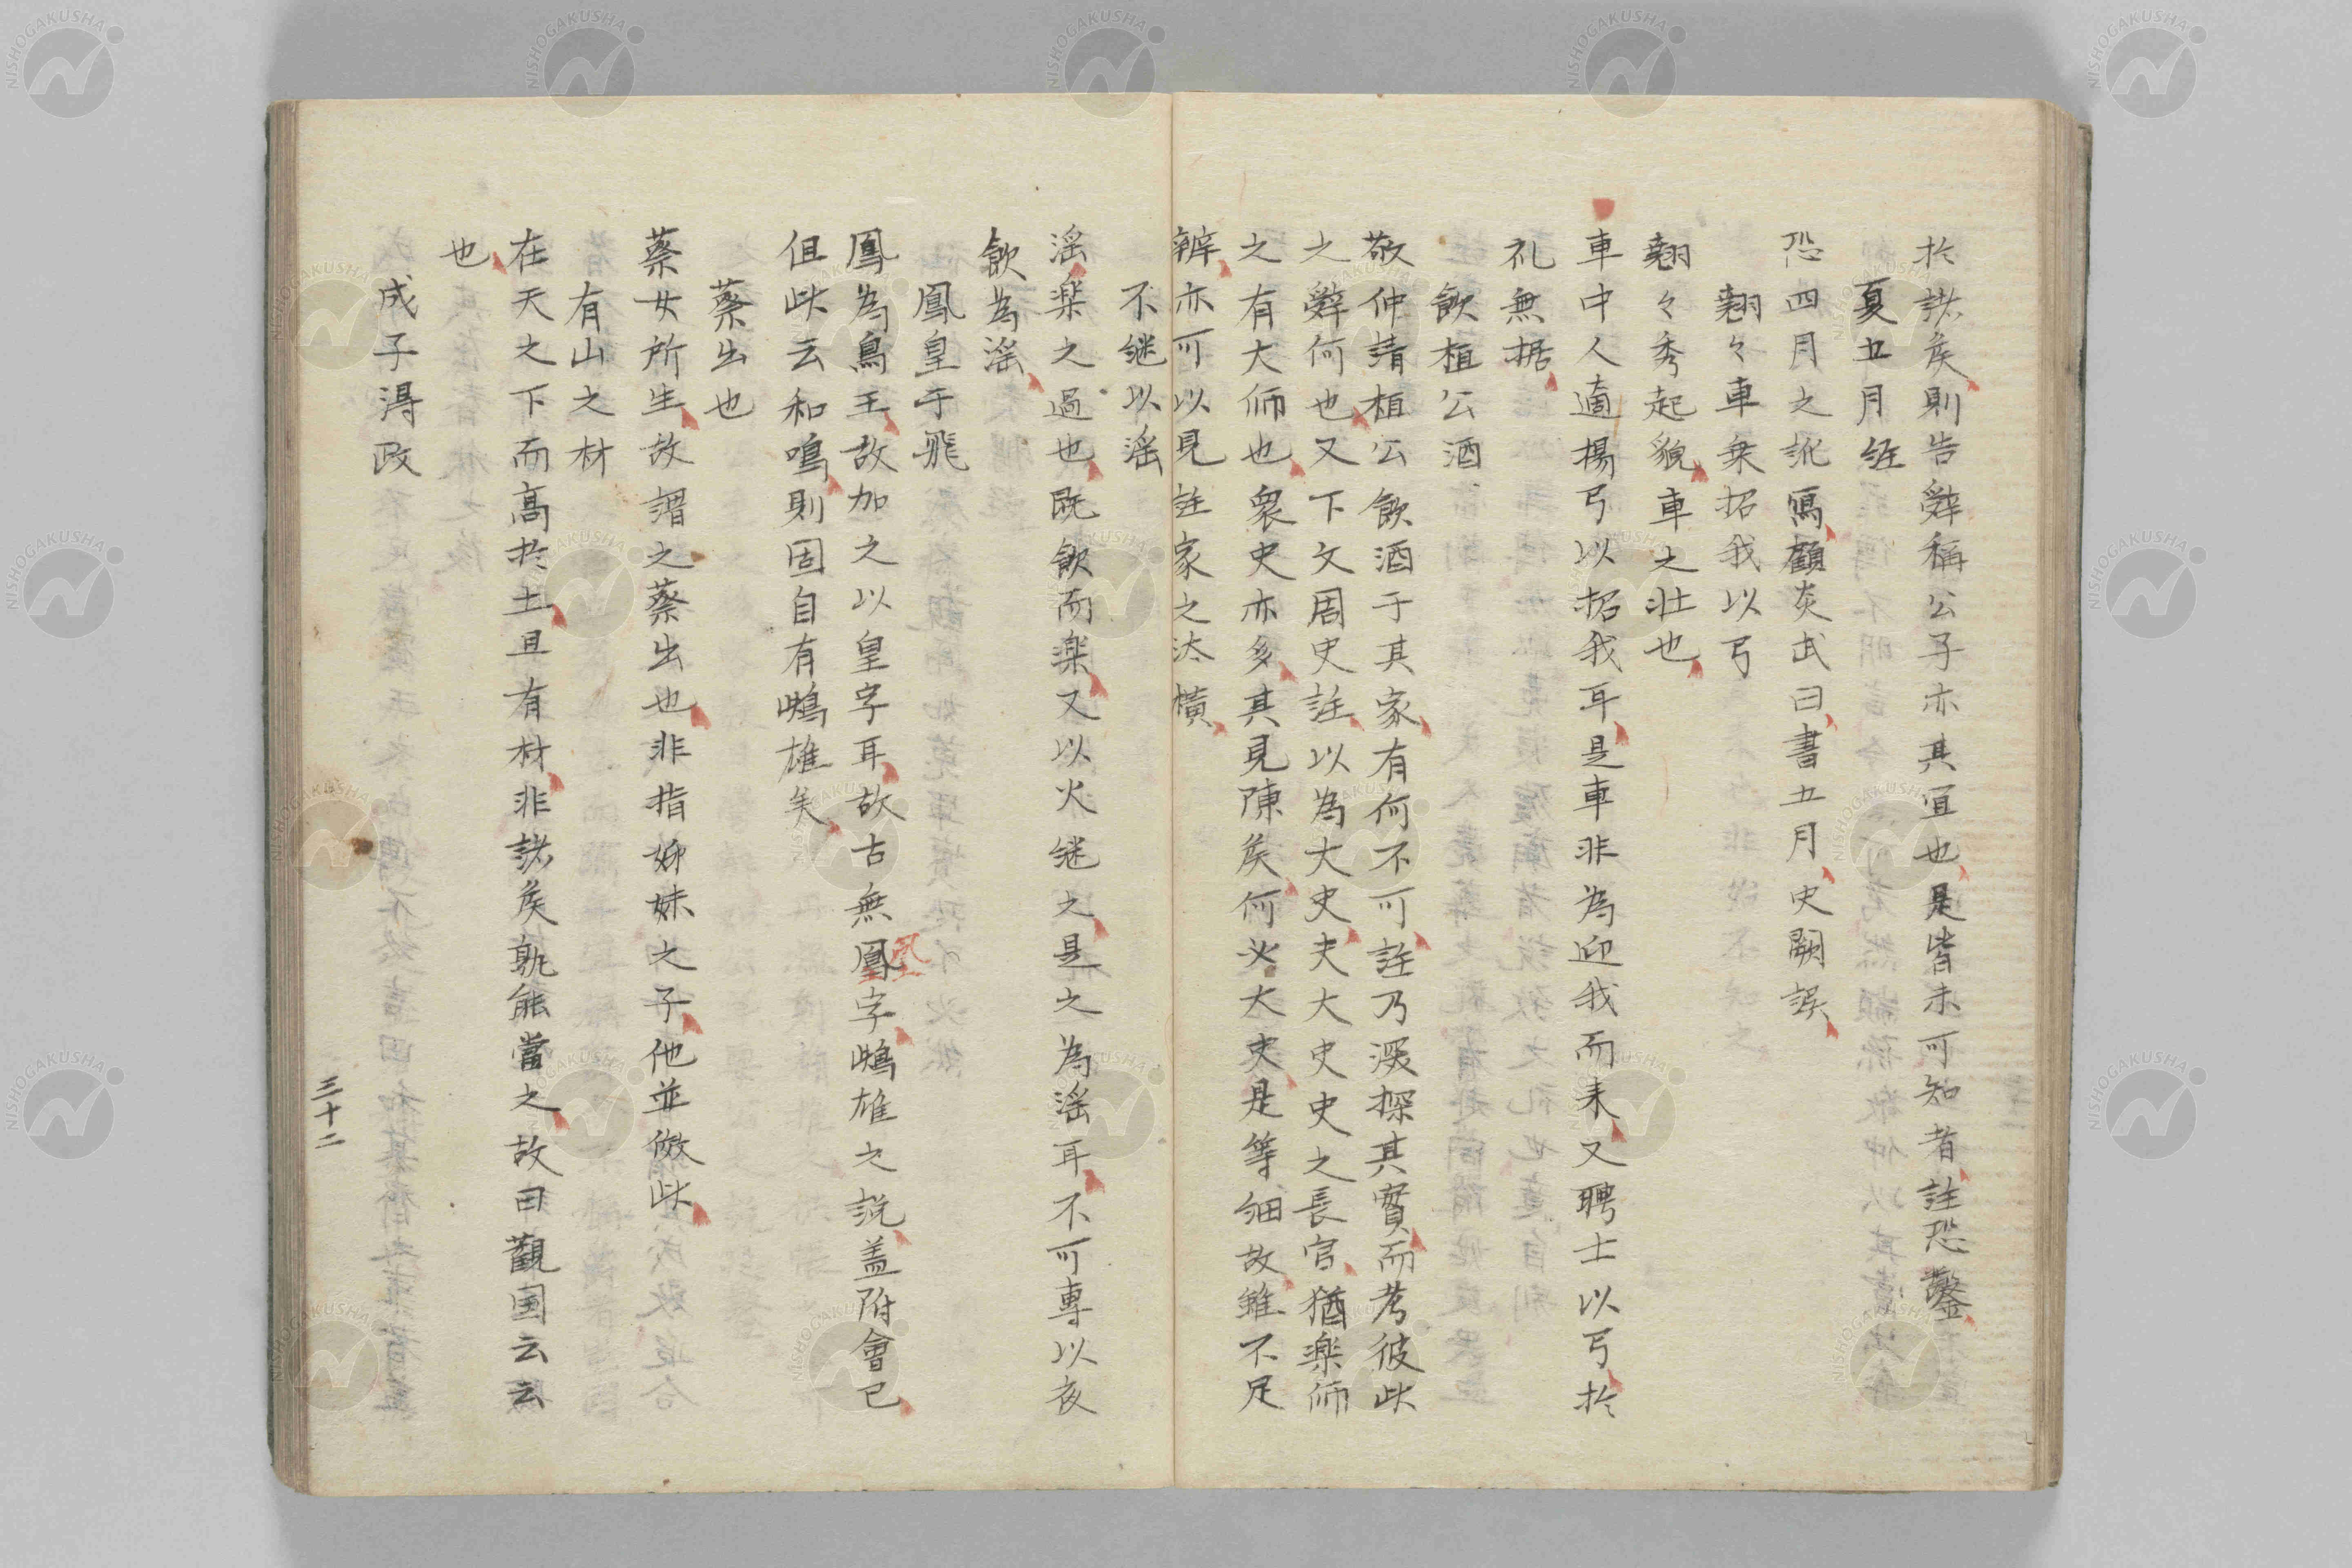 於諸矦則告辤稱公子亦其宜也是皆未可知者註恐鑿
夏五月経
恐四月之訛寫顧炎武曰書五月史闕誤
翹々車乗招我以弓
翹々秀起貌車之壮也
車中人適揚弓以招我耳是車非為迎我而来又聘士以弓於
礼無据
飲桓公酒
敬仲請桓公飲酒于其家有何不可註乃深探其實而考彼此
之辤何也又下文周史註以為大史夫大史史之長官猶楽师
之有大师也衆史亦多其見陳矦何必大史是等細故雖不足
辨亦可以見註家之汰横
不継以滛
滛楽之過也既飲而楽又以火継之是之為滛耳不可專以夜
飲為滛
鳳皇于飛
鳳為鳥王故加之以皇字耳故古無鳳字鴟雄之説盖附會已
凰
但此云和鳴則固自有鴟雄矣
蔡出也
蔡女所生故謂之蔡出也非指姉妹之子他並倣此
有山之材
在天之下而高於土且有材非諸矦孰能當之故曰觀国云云
也
成子淂政
三十二
NISHOGAKUSHA